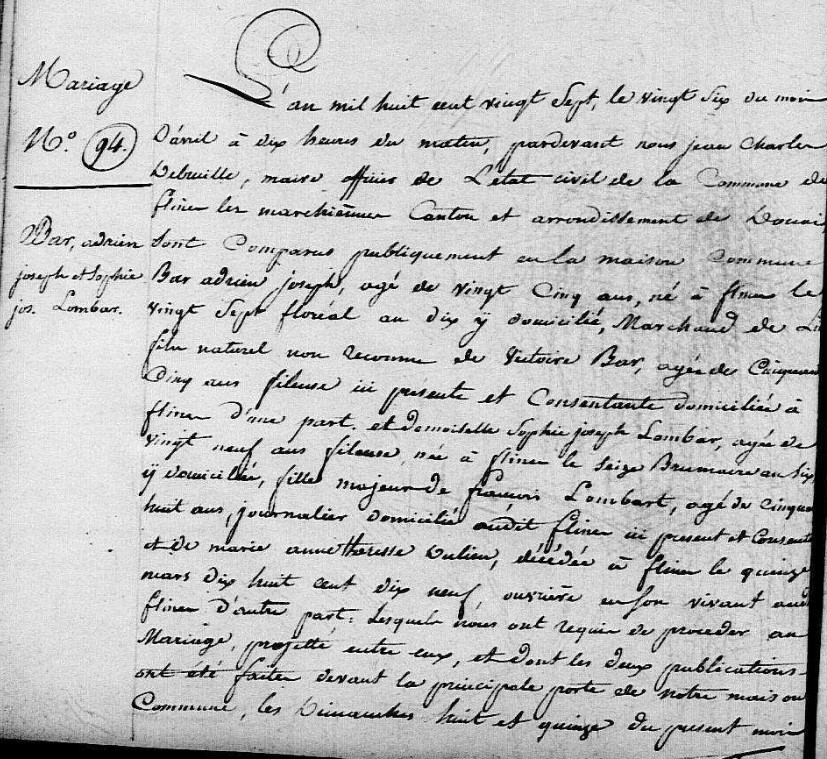 Mariage
N.o 94.
Bar, adrien
joseph et Sophie
jos. Lombar.
L'an mil huit cent vingt Sept, le vingt Six du mois
D'avril à dix heures du matin, pardevant nous jean Charles
maire officier de L'état civil de la Commune de
flines lez marchiennes Canton et arrondissement de Douai
Sont Comparus publiquement en la maison Commune
Bar adrien joseph, agé de vingt Cinq ans, né à flines le
vingt Sept floréal an dix ÿ domicilié, Marchand de Lin
fils naturel non reconnu de Victoire Bar, agée de Cinquante
Cinq ans fileuse ici presente et Consentante domiciliée à
flines D'une part. et demoiselle Sophie joseph Lombar, agée de
vingt neuf ans fileuse, née à flines le Seize Brumaire an Six,
ÿ domiciliée, fille majeur de francois Lombart, agé de Cinquante
huit ans, journalier domicilié audit flines ici present et Consentant
et de marie anne theresse Dulieu, décédée à flines le quinze
mars dix huit cent dix neuf ouvrière en son vivant audit
flines D'autre part: Lesquels nous ont requis de proceder au
Mariage, projetté entre eux, et dont les deux publications
ont été faites devant la principale porte de notre maison
Commune, les Dimanches huit et quinze du present mois